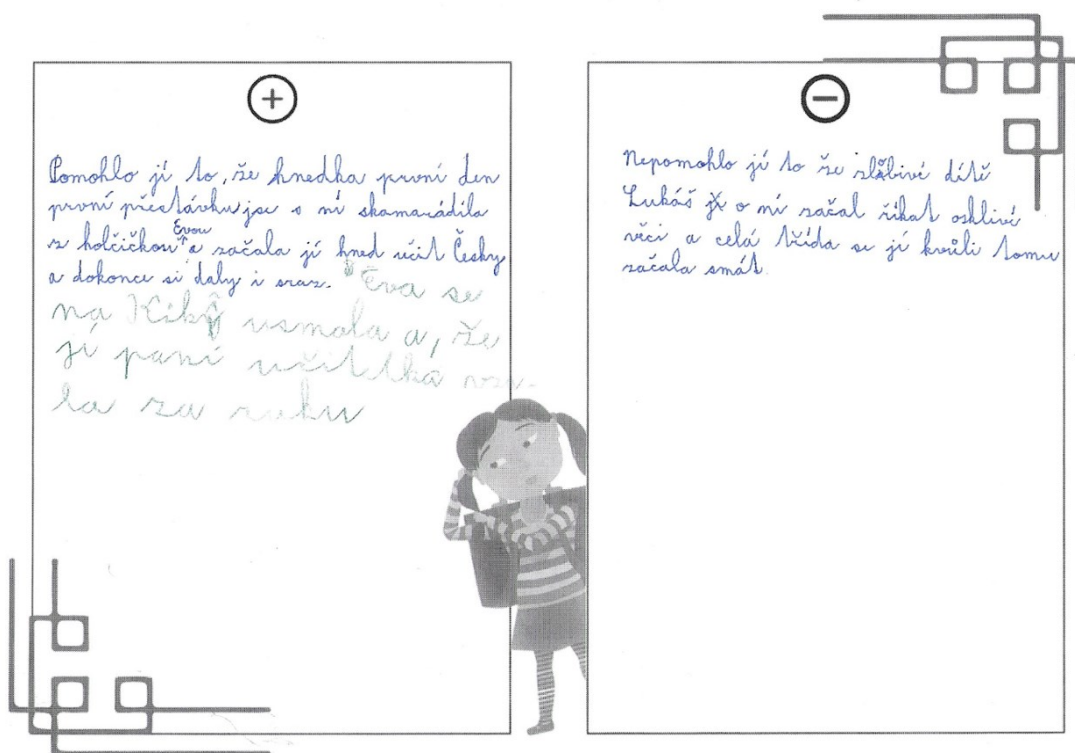 +
Pomohlo jí to, že hnedka první den
první přestávku jse s ní skamarádila
s holčičkou Evou a začala jí hned učit Česky
a dokonce si daly i sraz.
Eva se
na Kiki usmála a, že
jí paní učitelka vza-
la za ruku
−
Nepomohlo jí to že zlobivé dítě
Lukáš o ní začal říkat osklivé
věci a celá třída se jí kvůli tomu
začala smát.